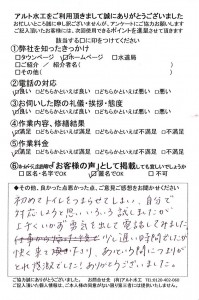 アルト水工をご利用頂きまして誠にありがとうございました
お忙しいところ誠に申し訳ございませんが、アンケートにご協力お願いします
ご記入頂いたお客様には、次回使用できるポイントを進呈させて頂きます
該当する□に印をつけてください
①弊社を知ったきっかけ
□タウンページ ☑ホームページ □水道局
□ご紹介 / ご紹介者名（　　）
□その他（　　）
②電話の対応
☑良い □どちらかといえば良い □どちらかといえば悪い □悪い
③お伺いした際の礼儀・挨拶・態度
☑良い □どちらかといえば良い □どちらかといえば悪い □悪い
④作業内容、修繕結果
☑満足 □どちらかといえば満足 □どちらかといえば不満足 □不満足
⑤作業料金
☑満足 □どちらかといえば満足 □どちらかといえば不満足 □不満足
「お客様の声」として掲載しても宜しいでしょうか
□区名・名字でOK ☑匿名でOK □不可
◆その他、良かった点悪かった点、ご意見ご感想をお聞かせください
初めてトイレをつまらせてしまい、自分で
対応しようと思い、いろいろ試しましたが
上手くいかず
電話してみました
少し遅い時間でしたが
快く来て
あっという間につまりが
とれ感激でした!! ありがとうございました。
ご協力誠にありがとうございました。